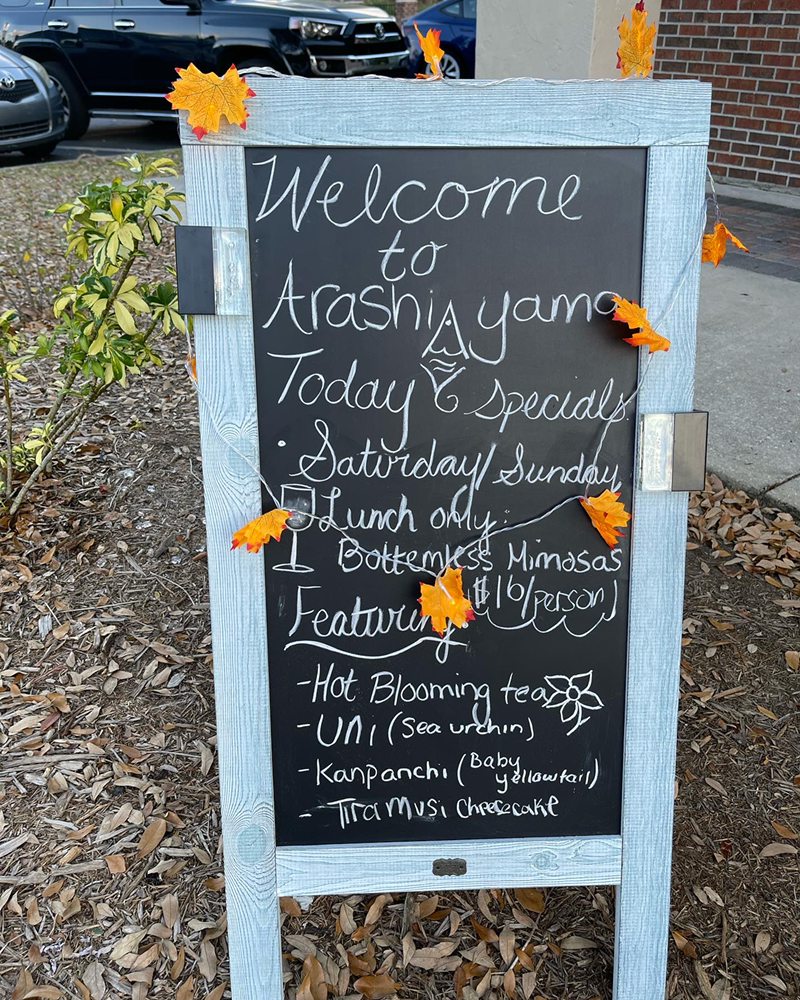 Welcome
to
ArashiAyama
Today Specials
• Saturday/Sunday
Lunch only:
Bottemless Mimosas
$16/person)
Featuring:
- Hot Blooming tea
- Uni (Sea urchin)
- Kanpanchi (Baby yellowtail)
- Tiramusi Cheesecake